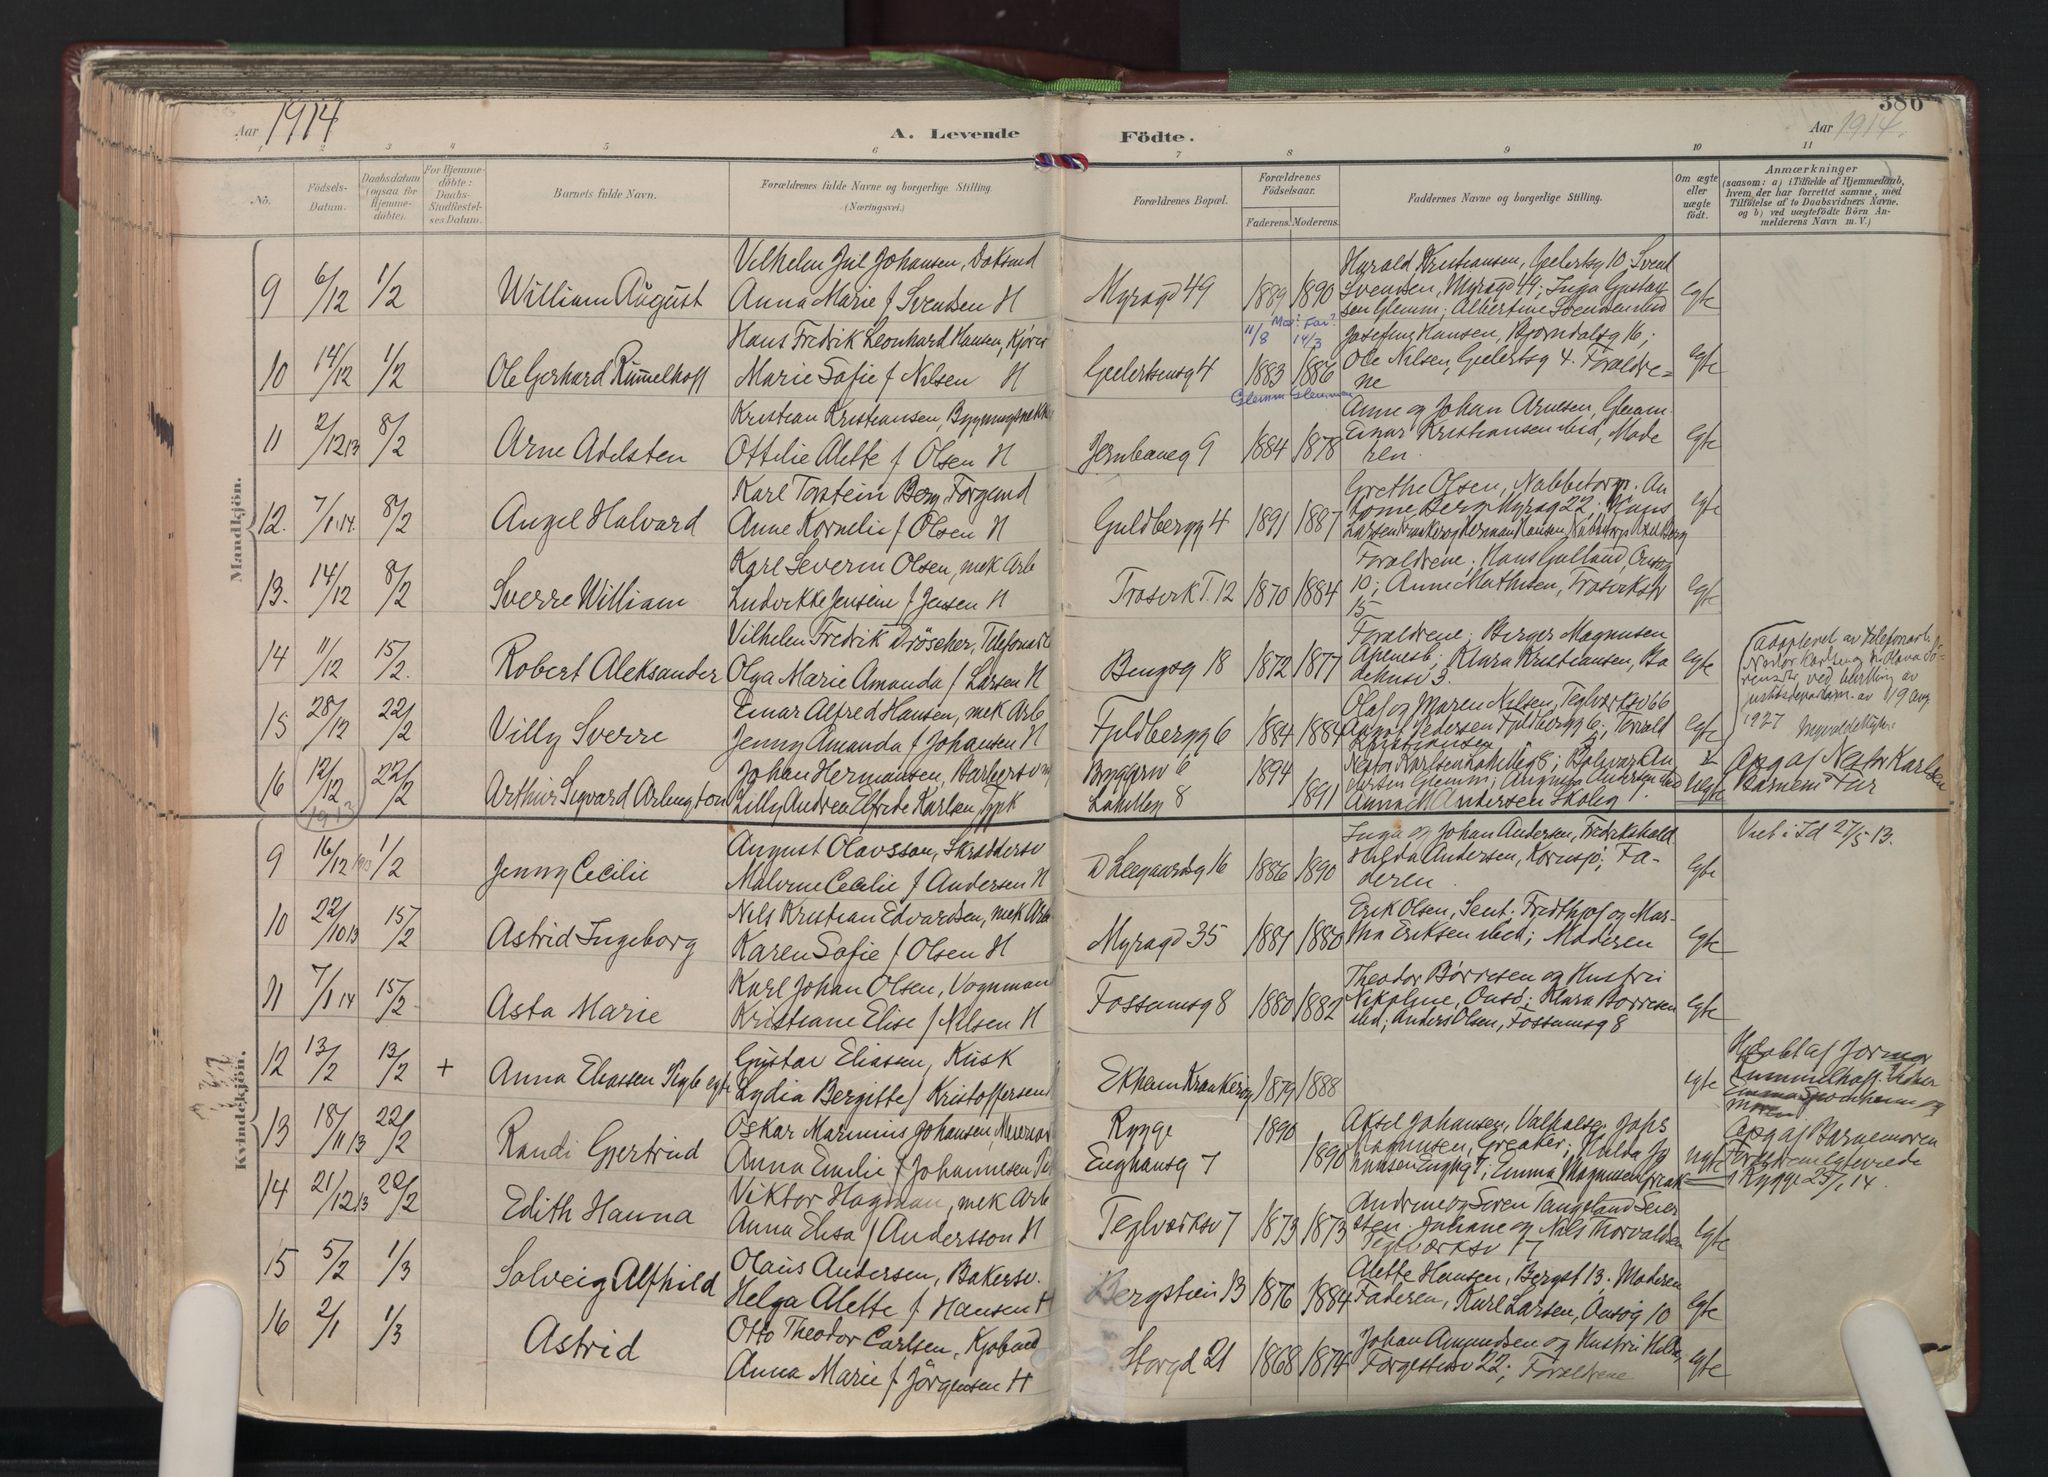 Aar 1914
A. Levende
Födte.
386
Aar 1914.
1 2 3 4 5 6 7 8 9 10 11
No.
Födsels-
Datum.
Daabsdatum
(ogsaa for
Hjemme-
döbte).
For Hjemme-
döbte:
Daabs-
Stadfæstel-
ses Datum.
Barnets fulde Navn.
Forældrenes fulde Navne og borgerlige Stilling.
(Næringsvei.)
Forældrenes Bopæl.
Forældrenes
Födselsaar.
Faderens. Moderens.
Faddernes Navne og borgerlige Stilling.
Om ægte
eller
uægte
födt.
Anmærkninger
(saasom: a) i Tilfælde af Hjemmedaab,
hvem der har forrettet samme, med
Tilföielse af to Daabsvidners Navne.
og b) ved uægtefödte Börn An-
melderens Navn m. V.)
Mandkjön.
9 6/12 1/2 William August
Vilhelm Jul Johansen,
Anna Marie f Svendsen H
Myragd 49 1889 1890
Harald Kristiansen, Geelertsg 10 Svend
Svendsen, Myragd 49; Inga Gustav
sen Glemm; Albertine Svendsen ibid
egte
11/8 Mor? Far? 14/3
10 14/12 1/2 Ole Gerhard Rummelhoff
Hans Fredrik Leonhard Hansen,
Marie Sofie f Nilsen H
Geelertsensg 4 1883 1886
Josefine Hansen, Bjørndalsg 16;
Ole Nilsen, Geelertsg 4. Forældre=
ne
egte
Glemm Glemmen
11 2/12 13 8/2 Arne Adelsten
Kristian Kristiansen,
Ottilie Alette f Olsen H
Jernbaneg 9 1884 1878
Anne og Johan Arnesen, Glemm.
Einar Kristiansen ibid, Mode
ren.
egte
12. 7/1 14. 8/2 Angel Halvard
Karl Torstein Berg,
Anne Kornelie f Olsen H
Guldbergg 4 1891 1887
Grethe Olsen, Nabbetorp. An
tome Berg Myrag 22; Hans
Larsen
egte
13. 14/12 8/2 Sverre William
Karl Severin Olsen, mek Arb
Ludvikke Jensine f Jensen H
Trosvik T. 12 1870 1884
Forældrene; Hans Gulland, Onsøg
10; Anne Mathisen, Trosvikstr
15
egte
14 11/12 15/2. Robert Aleksander
Vilhelm Fredrik Dröscher,
Olga Marie Amanda f Larsen H
Bengsg 18 1872 1877
Forældrene; Berger Magnusen
Apenesb; Klara Kristiansen, Ba
dehusv 3.
egte
adopteret av telefonarb.
Nator Karlsen og h. Olava
ved bevilling av
justisdepartem. av 19 aug
1927
15 28/12 22/2 Villy Sverre
Einar Alfred Hansen, mek Arb
Jenny Amanda f Johansen H
Fjeldbergg 6 1884 1884
Olaf og Maren Nilsen, Teglverksv 66
August Pedersen Fjeldbergg 6; Torvald
Kristiansen
egte
16 12/12 1913 22/2 Arthur Sigvard Arlington
Johan Hermansen, Barbersv
Lilly Andrea Elfride Karlsen,
Byggerv 6 1894
Lahelleg 8 1891
Nator Karlsen Lahelleg 8; Bolivar An
dersen Glemm; Augusta Andersen ibid
Anna M Andersen Skoleg 1.
Uegte
Opg af Nator Karlsen
Barnem Far
Kvindekjön.
9 16/12 1/2 Jenny Cecilie
August Olavsson, Skräddersv
Malvine Cecilie f Andersen H
D Leegaardsg 16 1886 1890
Inga og Johan Andersen, Fredrikshald
Hilda Andersen, Kornsjø; Fa-
deren
egte
Viet i Id 27/5 13.
10 22/10 13 15/2 Astrid Ingeborg
Nils Kristian Edvardsen, mek Arb
Karen Sofie f Olsen H
Myragd 35 1881 1880
Erik Olsen, Sent. Fridthjof og Mar-
tha Eriksen ibid; Moderen
egte
11 7/1 14 15/2 Asta Marie
Karl Johan Olsen, Vognmand
Kristiane Elise f Nilsen H
Fossumsg 8 1880 1882
Theodor Børresen og Hustru
Nikoline, Onsø; Klara Børresen
ibid; Anders Olsen, Fossumsg 8
egte
12 13/2 13/2 + Anna Eliassen
Gustav Eliassen, Kusk
Lydia Bergitte f Kristoffersen
Ekhaun Krakerøy 1879 1888
egte
Hjdøbt af Jormor
Rummelhoff.
13 18/11 13 22/2 Randi Gjertrud
Oskar Marinius Johansen,
Anna Emilie f Johannesen
Rygge 1890
Enghausg 7 1890
Aksel Johansen, Valhalsg. Johs
Magnusen, Greaker; Hulda Jo
hansen Enghg 7; Emma Magnusen Greak
uegte
Opg af Barnemoren
Forældrene egteviede
i Rygge 25/1 14.
14 21/12 13 22/2 Edith Hanna
Viktor Hagman, mek Arb
Anna Elisa f Andersson H
Teglverksv 7 1873 1873
Andrine og Søren Tangeland Seier
sten. Johane og Nils Thorvaldsen
Teglverksv 17
egte
15 5/2 1/3 Solveig Alfhild
Olaus Andersen, Bakersv.
Helga Alette f Hansen H
Bergstien 13 1876 1884
Alette Hansen, Bergst 13. Moderen
Faderen, Karl Larsen, Onsøg 10
egte
16 2/1 1/3 Astrid
Otto Theodor Carlsen, Kjøbmd
Anna Marie f Jörgensen H
Storgd 21 1868 1874
Johan Amundsen og Hustru Hilda,
Færgestedsv 22; Forældrene
egte